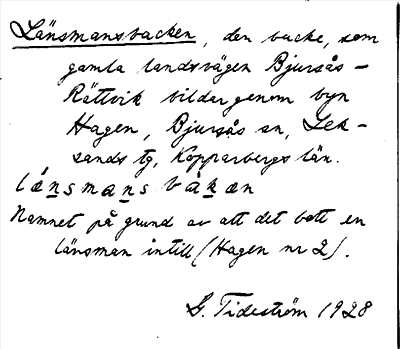 Länsmansbacken, den backe, som
gamla landsvägen Bjursås -
Rättvik bildar genom byn
Hagen, Bjursås sn, Lek-
sands tg, Kopparbergs län.
lánsmans bàkæn
Namnet på grund av att det bott en
länsman intill (Hagen nr 2).
G. Tideström 1928